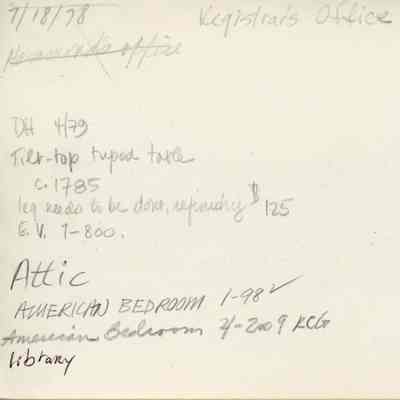 7/18/78 Registrar's Office
office
DH 4/79
Tilt-top tripod table
c. 1785
leg needs to be done, refinishing $125
E.V. 1-800.
Attic
AMERICAN BEDROOM 1-98 ✓
American Bedroom 2/-2009 KCG
library